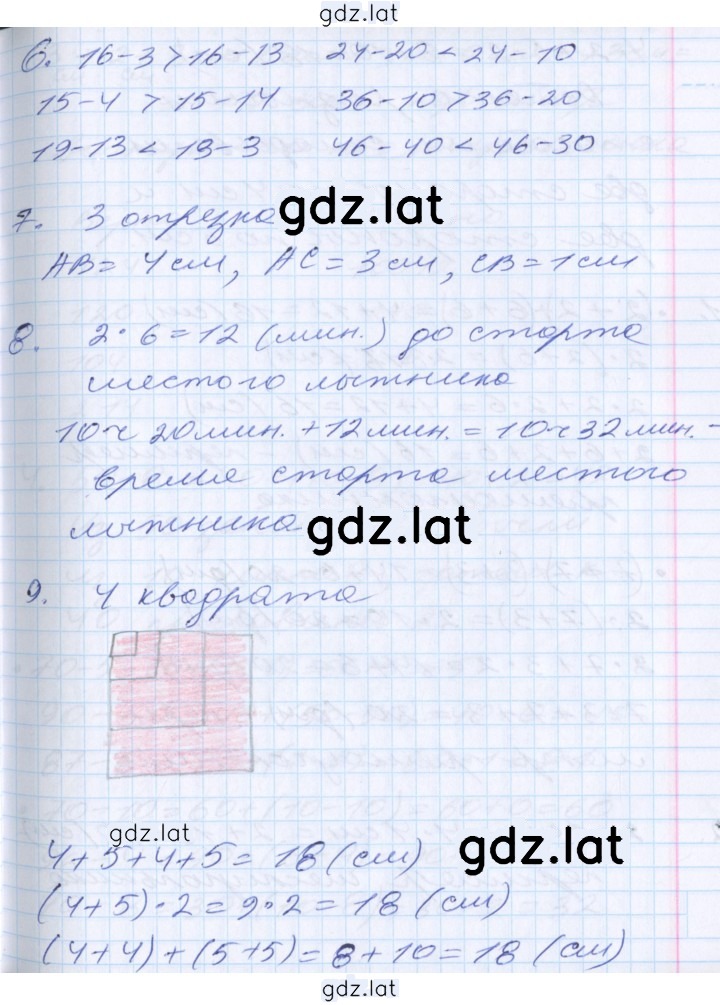 gdz.lat
6. 16-3>16-13 24-20<24-10
15-4>15-14 36-10>36-20
19-13<19-3 46-40<46-30
gdz.lat
7. 3 отрезка
AB=4см, AC=3см, CB=1см
8. 2·6=12 (мин.) до старта
шестого лыжника
10ч 20мин.+12мин.=10ч32мин.-
время старта шестого
лыжника
gdz.lat
9. 4 квадрата
gdz.lat
gdz.lat
4+5+4+5=18(см)
(4+5)·2=9·2=18(см)
(4+4)+(5+5)=8+10=18(см)
gdz.lat